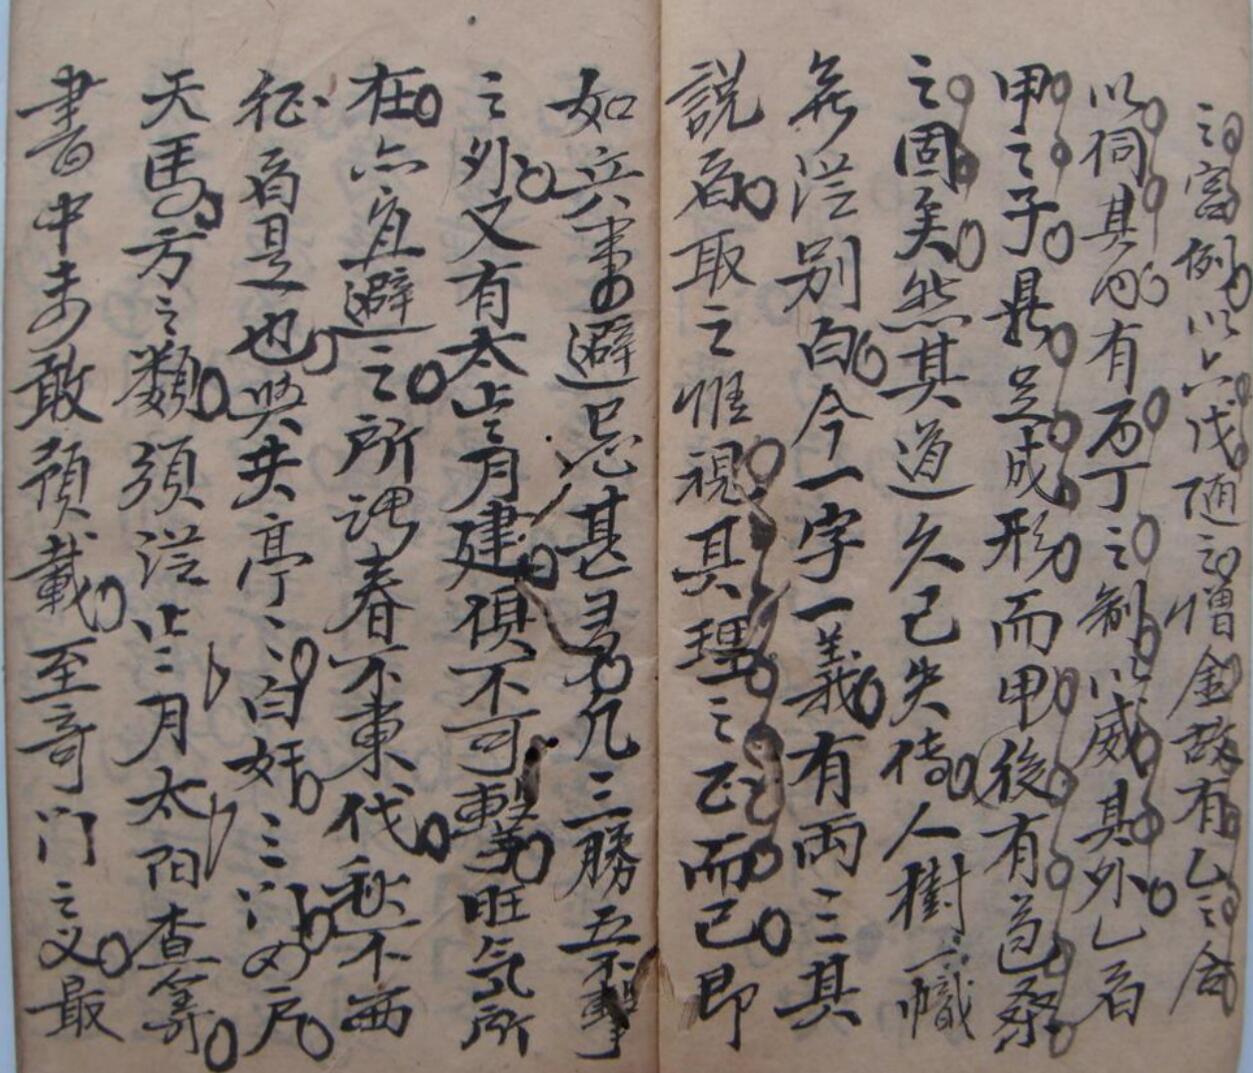 之富例以六戊随之憎金故有乙之合
以伺其内有丙丁之制以威其外乙者
甲之子是成形而甲後有苞桑
之固矣然其道久已失传人樹一幟
無從别白今一字一義有両三其
説者取之惟視其理之正而已即
如兵書の避忌甚多凡三勝五不擊
之外又有太歲月建俱不可擊旺気所
在亦宜避之所謂春不東伐秋不西
征者是也與夫亭亭白奸三门四户
天馬方之類須從正三月太阳查筹
書中未敢預載至奇门之义最